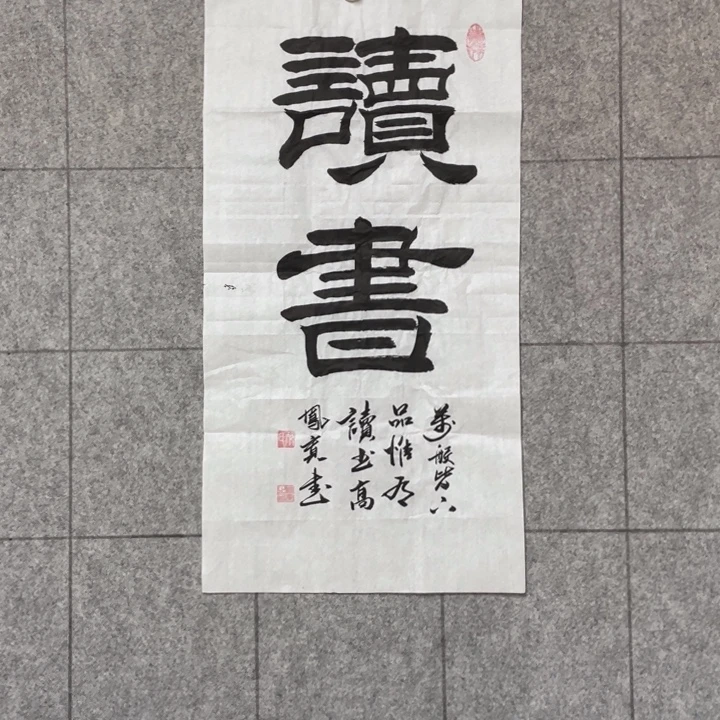 讀
書
萬般皆下
品惟有
讀书高
鳳 书